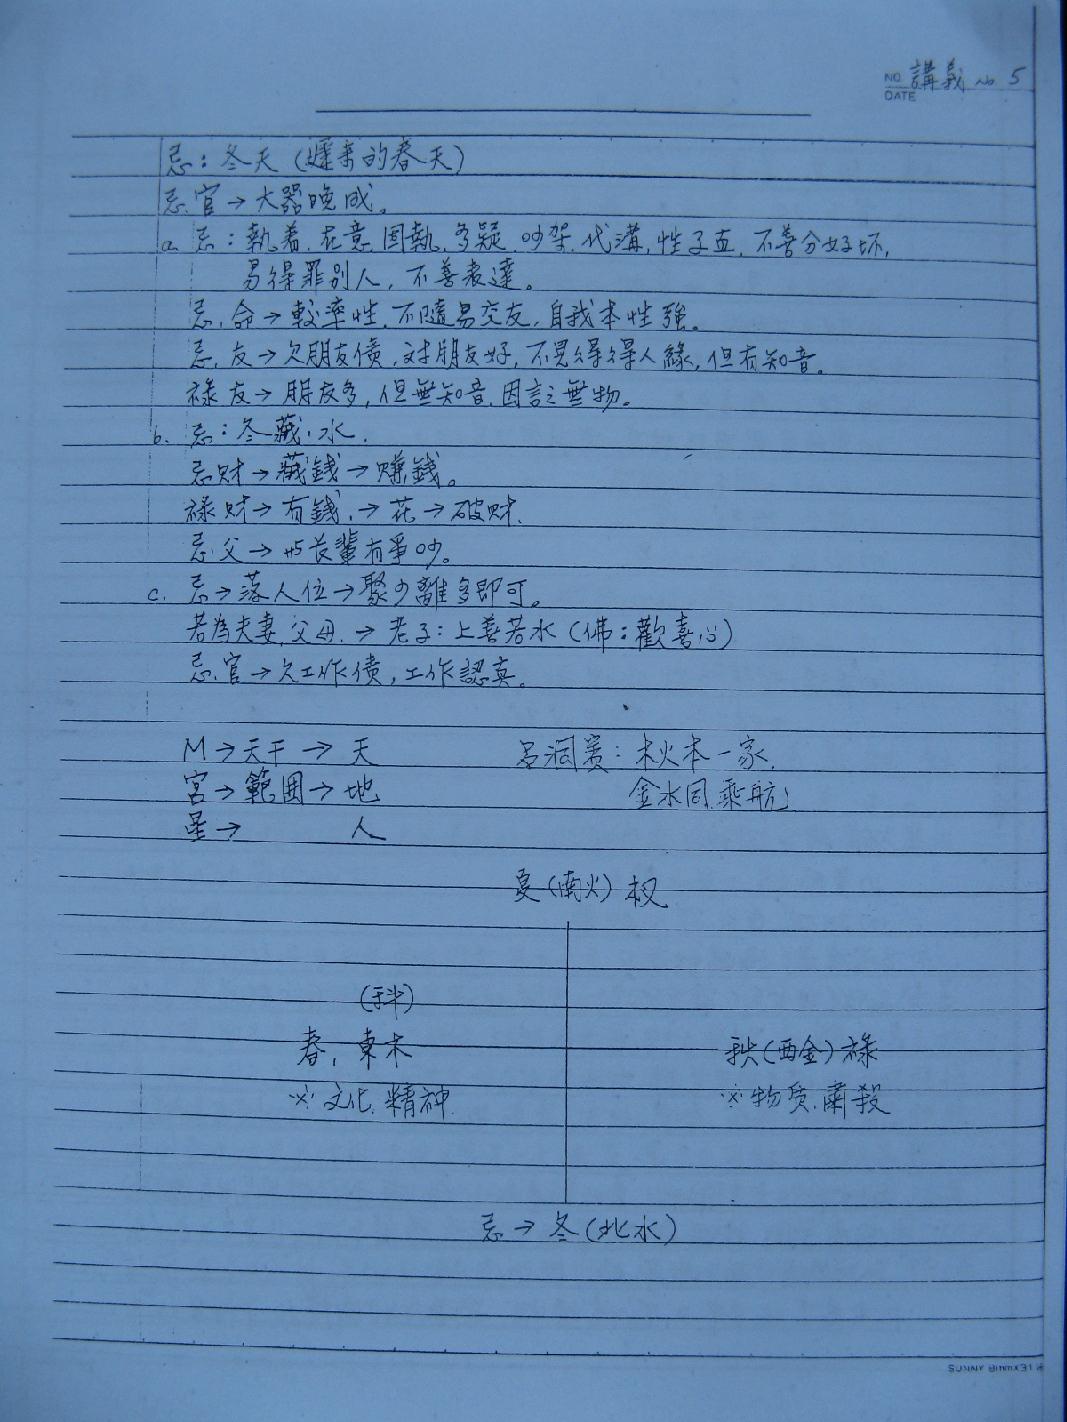 NO 講義 No 5
DATE
忌：冬天（遲來的春天）
忌.官→大器晚成。
a. 忌：執着.在意.固執.多疑.吵架.代溝.性子直.不善分好坏,
易得罪別人，不善表達。
忌.命→較率性.不隨易交友.自我本性強。
忌.友→欠朋友債,对朋友好,不見得得人緣,但有知音。
祿友→朋友多,但無知音.因言之無物。
b. 忌：冬藏.水.
忌財→藏錢→賺錢。
祿財→有錢.→花→破財.
忌父→与長輩有爭吵。
c. 忌→落人位→聚少離多即可。
若為夫妻.父母.→老子：上善若水（佛：歡喜心）
忌.官→欠工作債,工作認真。
M→天干→天
呂洞賓：木火本一家.
宮→範囲→地
金水同乘航
星→ 人
夏（南火）权
（科）
春，東木
秋（西金）祿
※文化.精神
※物质.肅殺
忌→冬（北水）